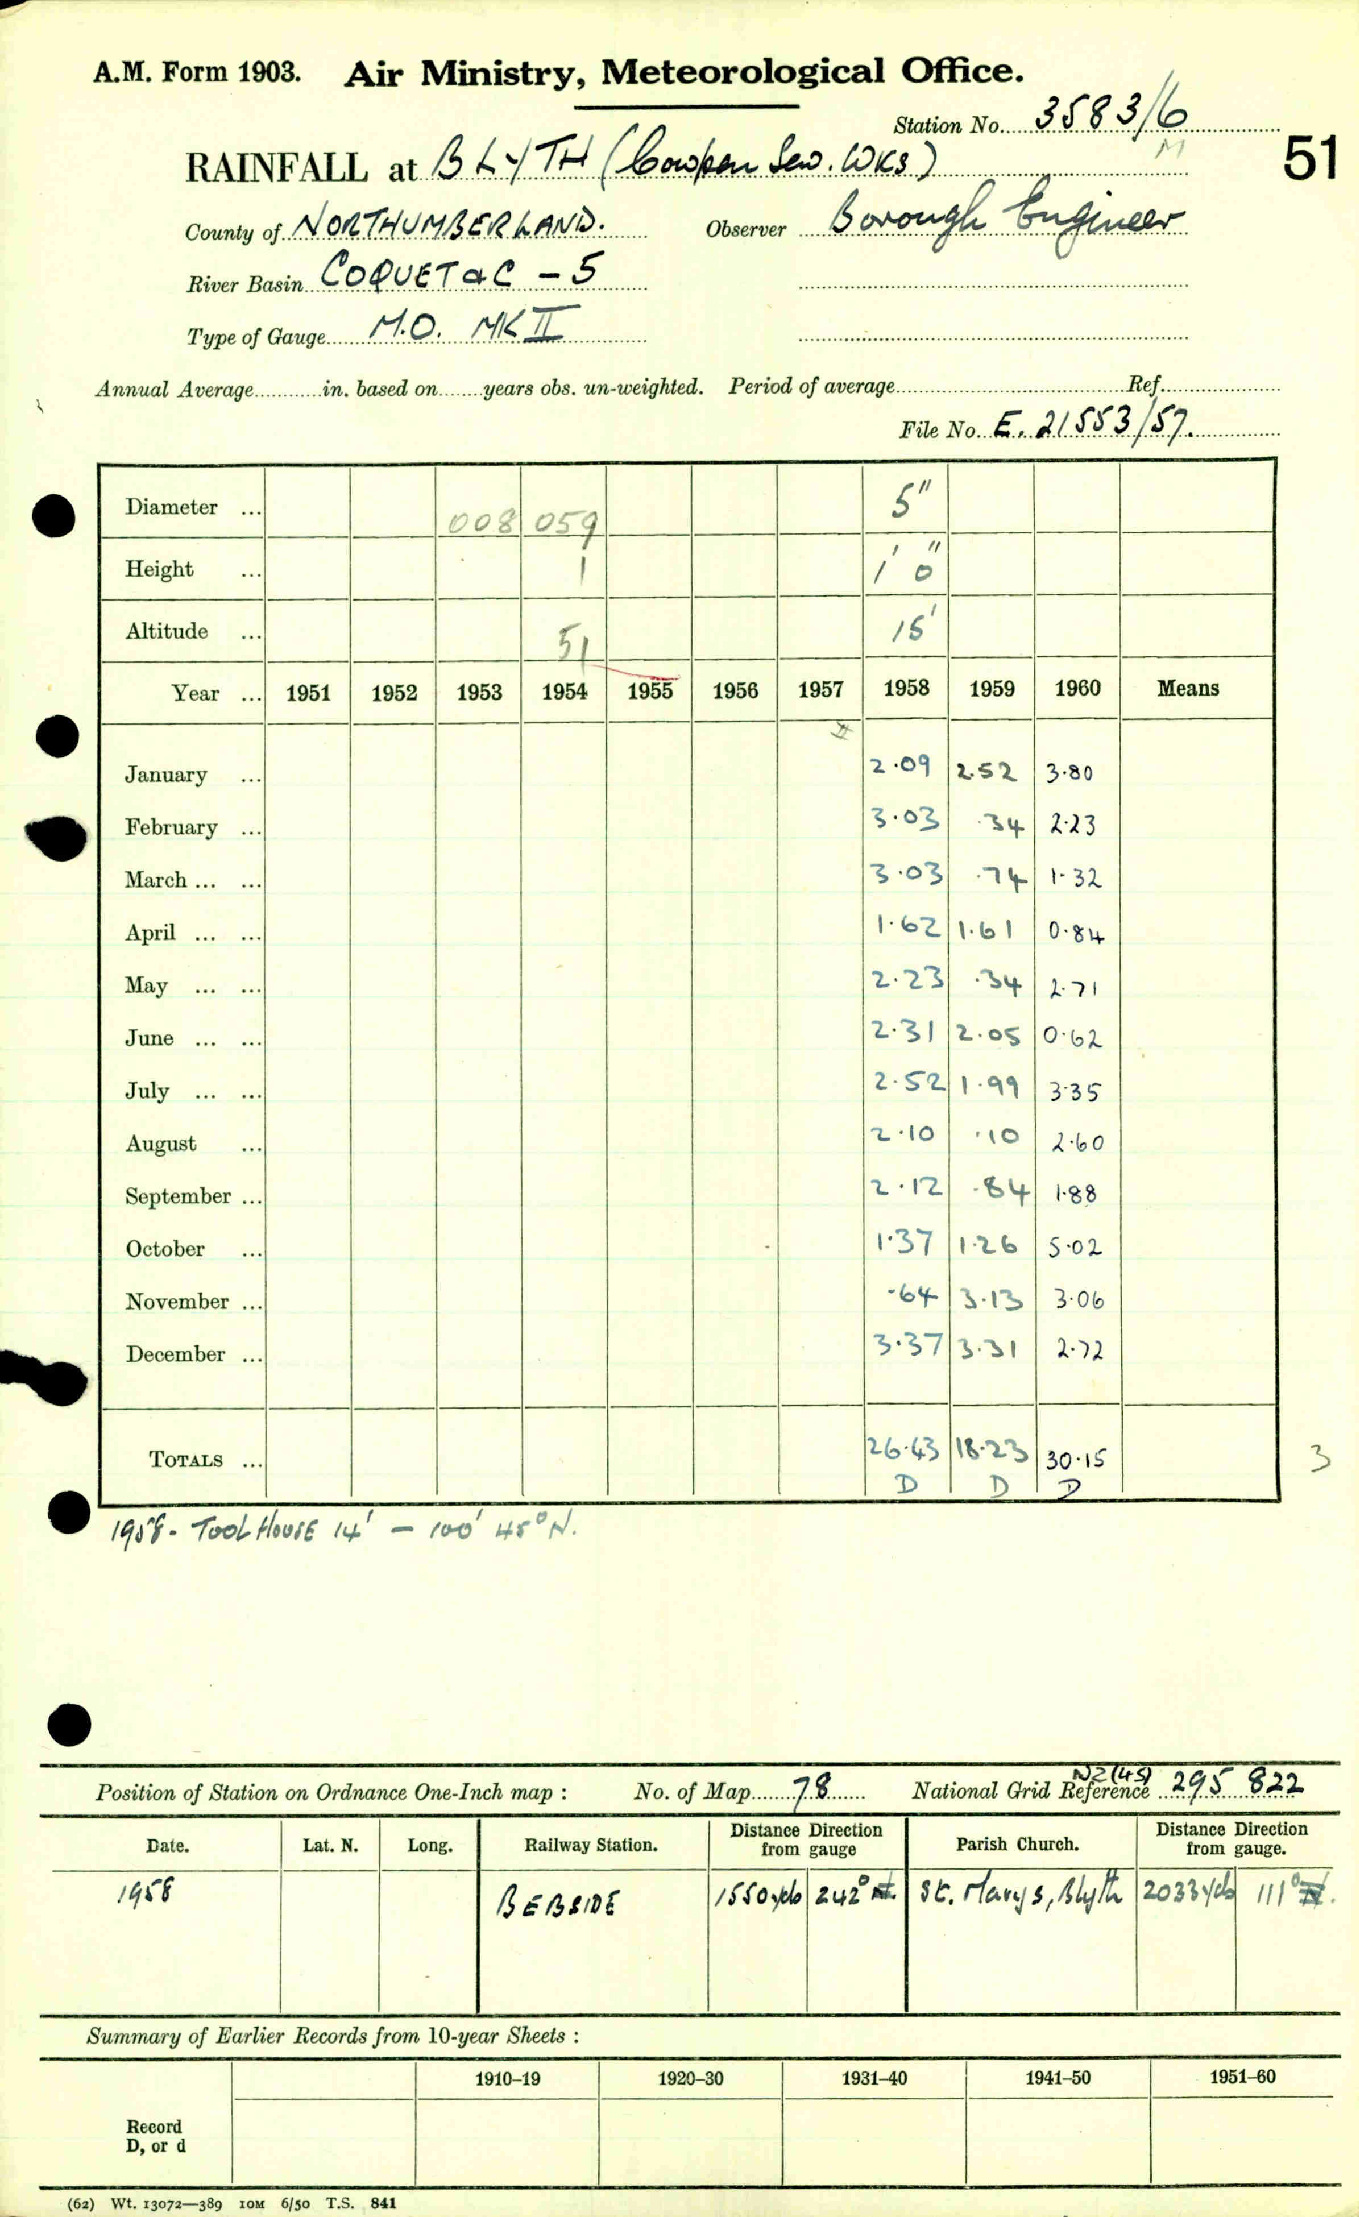 A.M. Form 1903. Air Ministry, Meteorological Office.
Station No. 3583/6
M
51
RAINFALL at BLYTH (Cowpen Sew. WKS)
County of NORTHUMBERLAND. Observer Borough Engineer
River Basin COQUET &C - 5
Type of Gauge M.O. MK II
Annual Average in. based on years obs. un-weighted. Period of average Ref.
File No. E. 21553/57.
Diameter ... 008 059 5"
Height ... 1 1' 0"
Altitude ... 51 15'
Year ... 1951 1952 1953 1954 1955 1956 1957 1958 1959 1960 Means
II
January ... 2.09 2.52 3.80
February ... 3.03 .34 2.23
March ... ... 3.03 .74 1.32
April ... ... 1.62 1.61 0.84
May ... ... 2.23 .34 2.71
June ... ... 2.31 2.05 0.62
July ... ... 2.52 1.99 3.35
August ... 2.10 .10 2.60
September ... 2.12 .84 1.88
October ... 1.37 1.26 5.02
November ... .64 3.13 3.06
December ... 3.37 3.31 2.72
TOTALS ... 26.43 18.23 30.15
D D D
3
1958 - TOOL HOUSE 14' - 100' 45° N.
Position of Station on Ordnance One-Inch map : No. of Map 78 National Grid Reference NZ (45) 295 822
Date. Lat. N. Long. Railway Station. Distance from gauge Direction Parish Church. Distance from gauge. Direction
1958 BEBSIDE 1550 yds 242° St. Marys, Blyth 2033 yds 111°
Summary of Earlier Records from 10-year Sheets :
1910–19 1920–30 1931–40 1941–50 1951–60
Record
D, or d
(62) Wt. 13072—389 10M 6/50 T.S. 841